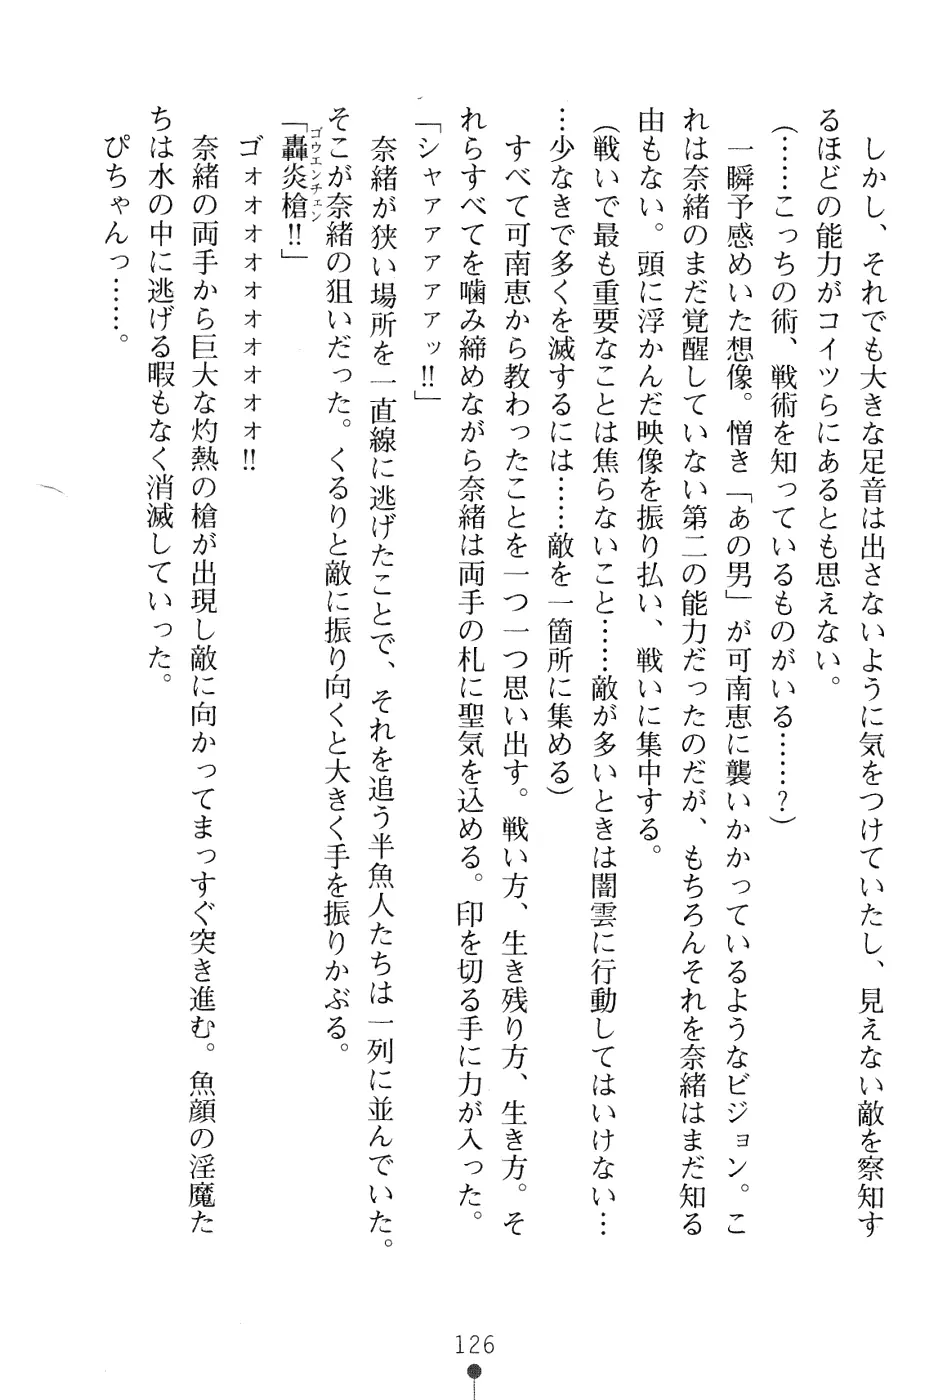 しかし、それでも大きな足音は出さないように気をつけていたし、見えない敵を察知す
るほどの能力がコイツらにあるとも思えない。
(……こっちの術、戦術を知っているものがいる……?)
一瞬予感めいた想像。憎き「あの男」が可南恵に襲いかかっているようなビジョン。こ
れは奈緒のまだ覚醒していない第二の能力だったのだが、もちろんそれを奈緒はまだ知る
由もない。頭に浮かんだ映像を振り払い、戦いに集中する。
(戦いで最も重要なことは焦らないこと……敵が多いときは闇雲に行動してはいけない…
…少なきで多くを滅するには……敵を一箇所に集める)
すべて可南恵から教わったことを一つ一つ思い出す。戦い方、生き残り方、生き方。そ
れらすべてを噛み締めながら奈緒は両手の札に聖気を込める。印を切る手に力が入った。
「シャァァァァッ!!」
奈緒が狭い場所を一直線に逃げたことで、それを追う半魚人たちは一列に並んでいた。
そこが奈緒の狙いだった。くるりと敵に振り向くと大きく手を振りかぶる。
ゴウエンチェン
「轟炎槍!!」
ゴォォォォォォォォ!!
奈緒の両手から巨大な灼熱の槍が出現し敵に向かってまっすぐ突き進む。魚顔の淫魔た
ちは水の中に逃げる暇もなく消滅していった。
ぴちゃんっ……。
126